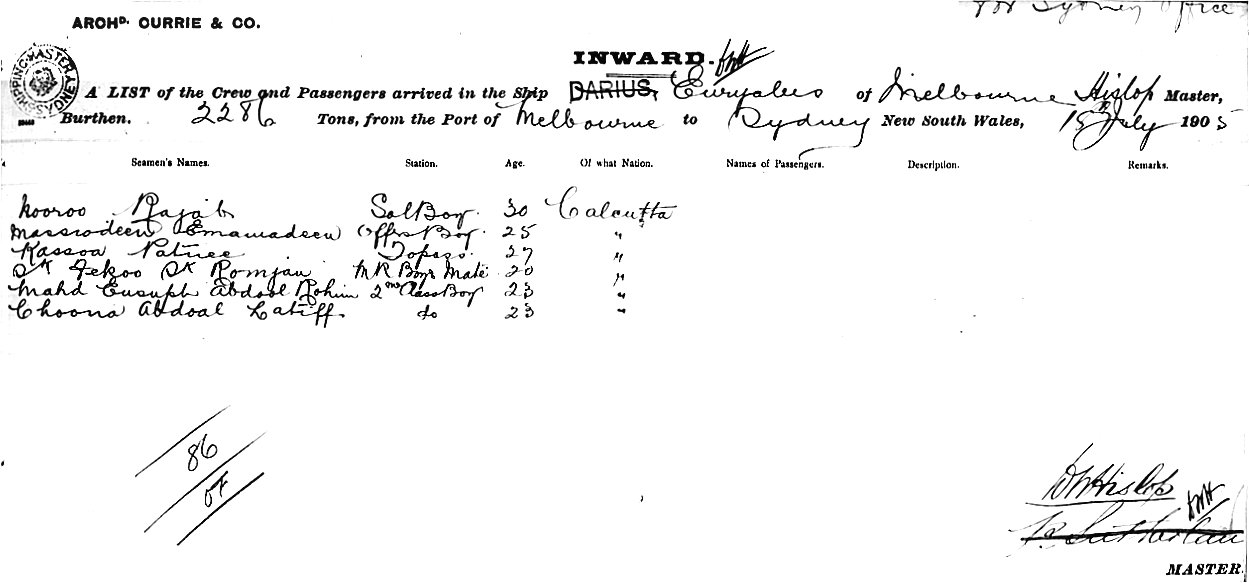 For Sydney Office
ARCHD. CURRIE & CO.
INWARD. DWH
SHIPPING MASTER SYDNEY
A LIST of the Crew and Passengers arrived in the Ship DARIUS, Euryalus of Melbourne Hislop Master,
Burthen. 2286 Tons, from the Port of Melbourne to Sydney New South Wales, 15th July 1905
Seamen's Names. Station. Age. Of what Nation. Names of Passengers. Description. Remarks.
Nooroo Rajab Sal Boy. 30 Calcutta
Massrodeen Emamadeen Offrs Boy. 25 "
Kassoa Patnee Topass 27 "
Sk Fekoo Sk Romjan M R Boys Mate 20 "
Mahd Eusuph Abdool Rohim 2nd Class Boy 23 "
Choona Abdoal Latiff. do 23 "
86
OF
DWHislop
DWH
MASTER.